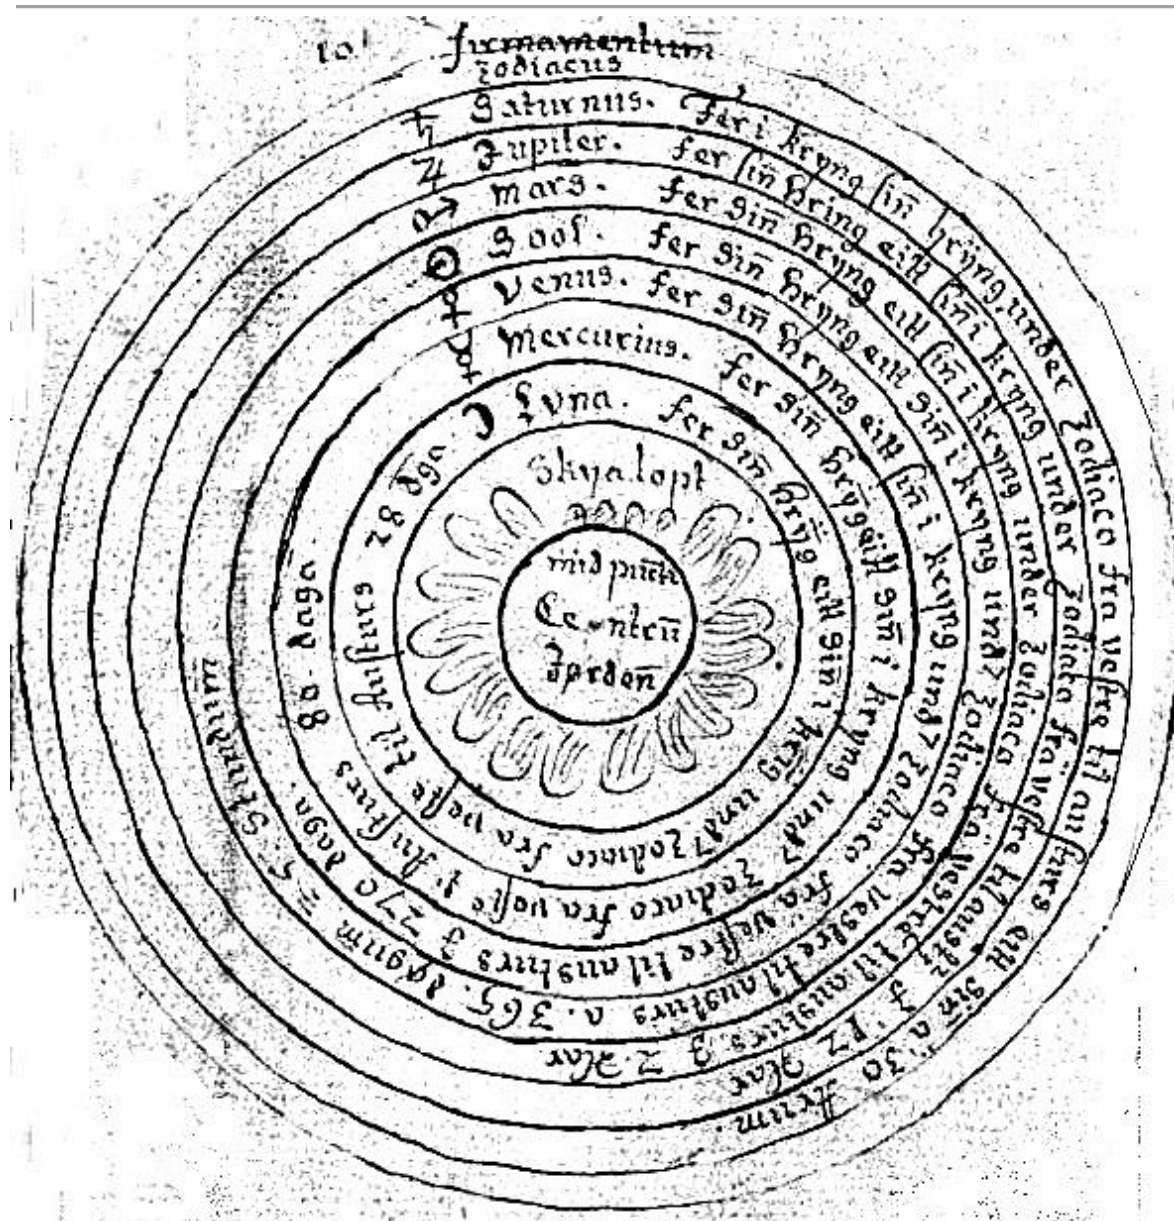 10
firmamentum
Zodiacus
♄ Saturnus. Fer i kryng sin̄ hryng under Zodiaco fra vestre til austurs eitt sin̄ a 30 Arum.
♃ Jupiter. Fer sin̄ hring eitt sin̄ i kryng under Zodiaco fra vestre til austr 12 Aar
♂ Mars. Fer sin̄ hryng eitt sin̄ i kryng under Zodiaco fra vestre til austurs 2 Aar
☉ Sool. Fer sin̄ hryng eitt sin̄ i kryng Zodiaco fra vestre til austurs a 365. dagum
♀ Venus. Fer sin̄ hryng eitt sin̄ i kryng Zodiaco fra vestre til austurs 270 daga.
☿ Mercurius. Fer sin̄ hryng eitt sin̄ i kryng Zodiaco fra veste austurs 80 daga
☽ Lvna. Fer sin̄ hryng eitt sin̄ i kring Zodiaco fra veste til austurs 28 dga.
Skya lopt
mid
Centru̅
Jorden̄